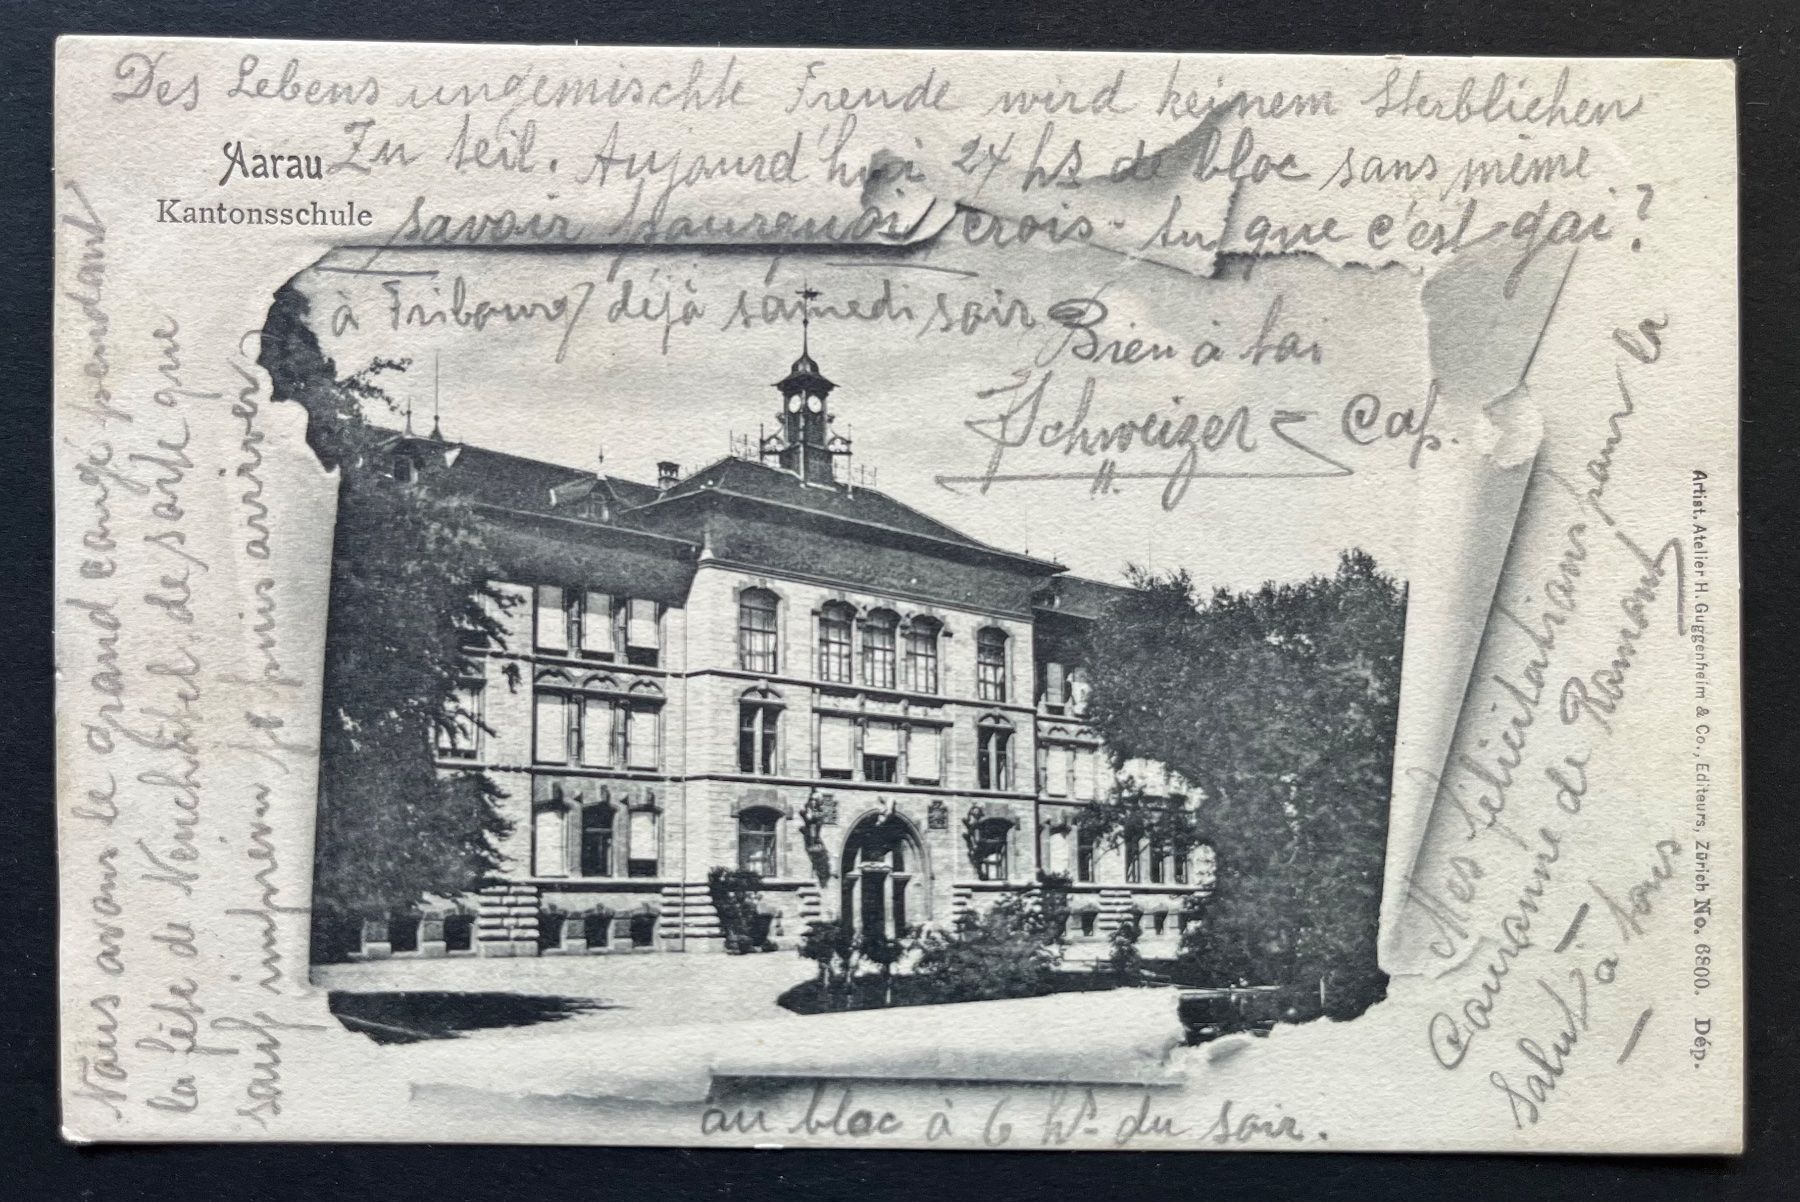 Des Lebens ungemischte Freude wird keinem Sterblichen
Zu teil. Aujourd'hui 24 hs de bloc sans même
savoir pourquoi crois-tu que c'est gai?
Aarau
Kantonsschule
Nous avons le grand congé pendant
la fête de Neuchâtel de sorte que
sauf imprévu je puis arriver
à Fribourg déjà samedi soir
Bien à toi
Schweizer Cap.
Mes félicitations pour la
Couronne de Romont
Salut à tous
au bloc à 6 hs du soir.
Artist. Atelier H. Guggenheim & Co., Editeurs, Zürich No. 6800. Dép.